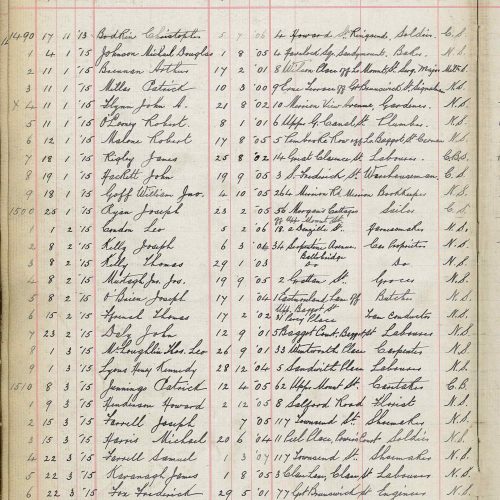 1490 17 11 '13 Bodkin Christopher 5 7 '06 4 Howard St. Ringsend. Soldier. C.S.
1 4 1 '15 Johnson Michael Douglas 1 8 '05 4 Havelock Sq. Sandymount. Baker N.S.
2 11 1 '15 Brennan Arthur 17 2 '01 8 Wilson Place off Lr Mount St. Major
3 11 1 '15 Patrick 10 3 '00 9 Terrace off Gt Brunswick St. N.S.
4 11 1 '15 Flynn John A. 21 8 '02 10 Merrion View Avenue, Gardener. N.S.
5 11 1 '15 Robert 8 1 '01 6 Upp. G. Canal St. Plumber. N.S.
6 12 1 '15 Malone Robert 17 8 '05 5 Pembroke Row off Lr Baggot St N.S.
7 18 1 '15 Rigley James 25 8 '02 14 Great Clarence St. Labourer. C.B.S.
8 19 1 '15 Hackett John 19 9 '05 3 S. Frederick St. Warehouseman. C.S.
9 18 1 '15 Goff William Jno. 4 10 '05 264 Merrion Rd. Merrion Bookkeeper N.S.
1500 25 1 '15 Ryan Joseph 23 2 '05 56 Morgan's Cottages Sailor C.S.
off Upp Mount St.
1 2 '15 Condon Leo 5 2 '06 18.a Denzille St. N.S.
2 8 2 '15 Kelly Joseph 6 3 '06 34 Serpentine Avenue. Car Proprietor N.S.
Ballsbridge
3 8 2 '15 Kelly Thomas 29 1 '03 Do Do N.S.
4 8 2 '15 Murtagh Jn. Jos. 19 9 '05 2 Grattan St. Grocer N.S.
5 8 2 '15 O'Brien Joseph 17 1 '04 1 Eastmoreland Lane off Butcher N.S.
Upp. Baggot St.
6 15 2 '15 Thomas 17 2 '02 Percy Place Tram Conductor N.S.
7 23 2 '15 Daly John 12 9 '01 5 Baggot Court. Baggot St Labourer N.S.
8 1 3 '15 McLoughlin Thos. Leo 26 9 '01 33 Wentworth Place Carpenter N.S.
9 1 3 '15 Lyons Henry Kennedy 28 12 '04 5 Sandwith Place Labourer N.S.
1510 8 3 '15 Jennings Patrick 12 4 '05 62 Upp. Mount St. Caretaker C.B.
1 9 3 '15 Henderson Howard 2 12 '05 8 Salford Road Florist N.S.
2 15 3 '15 Farrell Joseph 7 '05 117 Townsend St. Shoemaker N.S.
3 15 3 '15 Harris Michael 20 6 '04 11 Peel Place, Court Soldier N.S.
4 22 3 '15 Farrell Samuel 1 3 '07 117 Townsend St. Shoemaker N.S.
5 22 3 '15 Kavanagh James 1 8 '05 3 Clare Lane Clare St Labourer N.S.
6 22 3 '15 Fox Frederick 29 5 '01 77 Gt. Brunswick St. Engineer N.S.